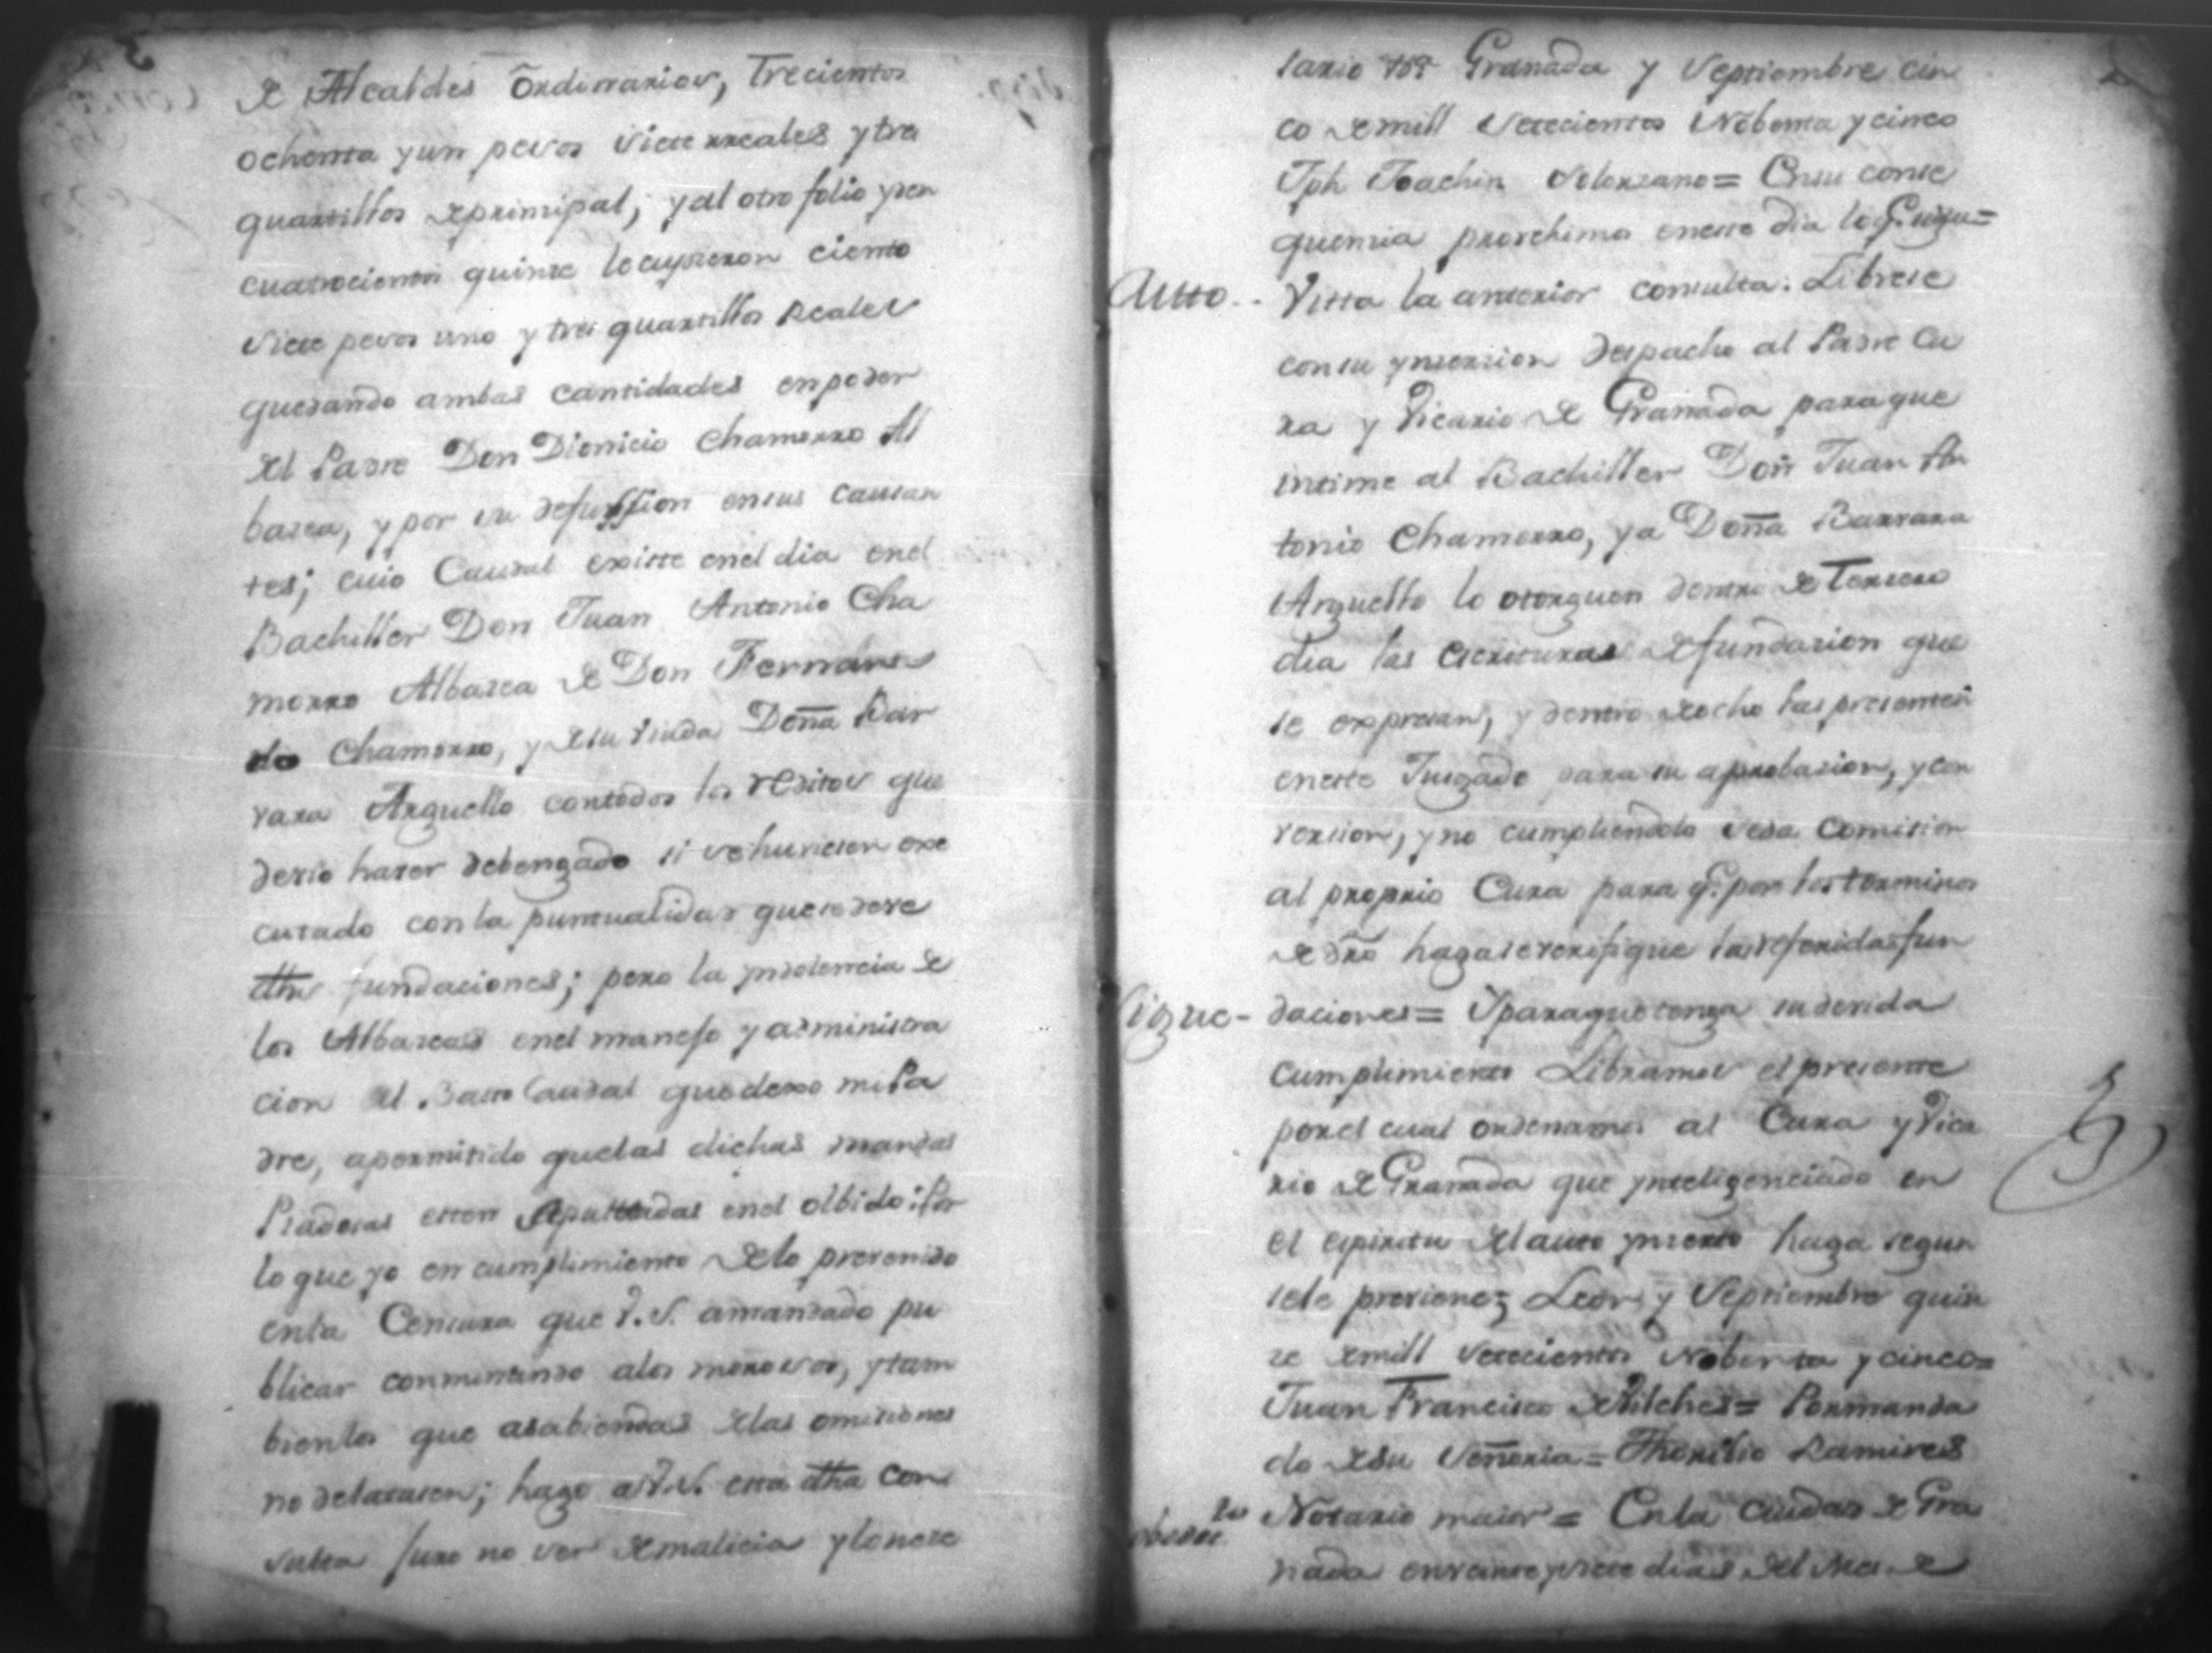 de Alcaldes ordinarios, trecientos
ochenta y un pesos siete rreales y tres
quartillos de prinsipal; y al otro folio y sen
cuatrocientos quinse le cupieron ciento
siete pesos uno y tres quartillos reales
quedando ambas cantidades en poder
del Padre Don Dionicio Chamorro Al
basea, y por su defunssion en sus causan
tes; cuio Caudal existe en el dia en el
Bachiller Don Juan Antonio Cha
morro Albasea de Don Fernan
do Chamorro, y de su viuda Doña Bar
vara Arguello con todos los reditos que
devio haver debengado si se huviesen exe
cutado con la puntualidad que se deve
dhas fundaciones; pero la yndolencia de
los Albaseas en el manejo y administra
cion del Basto Caudal que dexo mi Pa
dre, a permitido que las dichas mandas
Piadosas esten sepultadas en el olbido: Por
lo que yo en cumplimiento de lo prevenido
en la Censura que V.S. a mandado pu
blicar conminando a los morosos, y tam
bien los que a sabiendas de las omisiones
no delatasen; hago a V.S. esta dha con
sulta juro no ser de malicia y lo nese
sario Granada y Septiembre cin
co de mill setecientos Nobenta y cinco
Jph Joachin Solorzano = En su conse
quensia provehimos en este dia lo q. sigue =
Auto.. Vista la anterior consulta: Librese
con su ynsersion despacho al Padre Cu
ra y Vicario de Granada para que
intime al Bachiller Don Juan An
tonio Chamorro, y a Doña Barvara
Arguello lo otorguen dentro de tersero
dia las escrituras de fundasion que
se expresan, y dentro de ocho las presenten
en este Jusgado para su aprobasion, y con
version, y no cumpliendolo se da comision
al proprio Cura para q. por los terminos
de dro haga se verifique las referidas fun
Sigue - daciones = Y para que tenga su devida
cumplimiento Libramos el presente
por el cual ordenamos al Cura y Vica
rio de Granada que ynteligenciado en
el espiritu del auto ynserto haga segun
se le previene; Leon y Septiembre quin
se de mill setecientos Nobenta y cinco =
Juan Francisco de Vilches = Por manda
do de su Señoria = Thoribio Ramires
Notario maior = En la Ciudad de Gra
nada en veinte y siete dias del Mes de